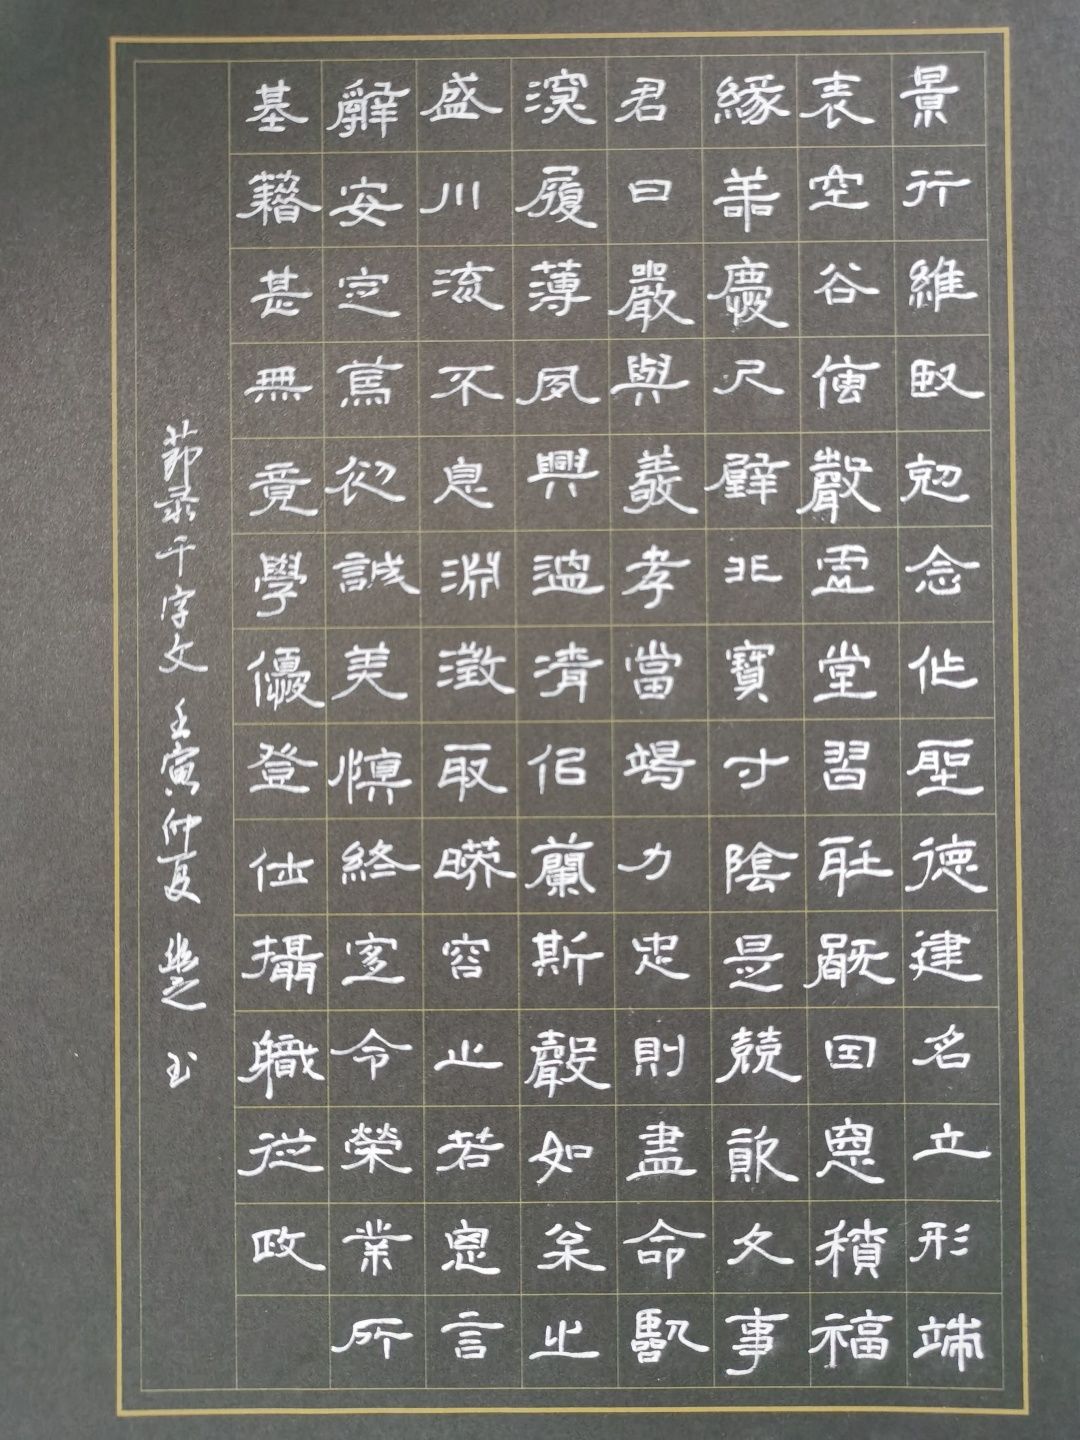 景行維賢剋念作聖德建名立形端
表空谷傳聲虛堂習聽禍因惡積福
緣善慶尺璧非寶寸陰是競資父事
君曰嚴與敬孝當竭力忠則盡命臨
深履薄夙興溫凊似蘭斯馨如松之
盛川流不息淵澄取暎容止若思言
辭安定篤初誠美慎終宜令榮業所
基籍甚無竟學優登仕攝職從政
節录千字文 壬寅仲夏 楚 玉